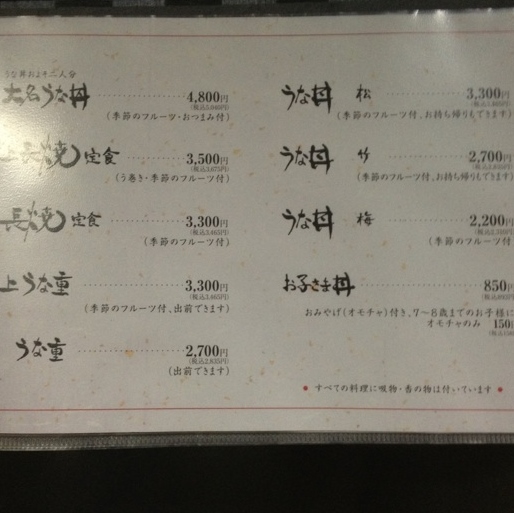 うな丼およそ二人分
大名うな丼 4,800円
(税込5,040円)
(季節のフルーツ・おつまみ付)
上長焼定食 3,500円
(税込3,675円)
(う巻き・季節のフルーツ付)
長焼定食 3,300円
(税込3,465円)
(季節のフルーツ付)
上うな重 3,300円
(税込3,465円)
(季節のフルーツ付、出前できます)
うな重 2,700円
(税込2,835円)
(出前できます)
うな丼 松 3,300円
(税込3,465円)
(季節のフルーツ付、お持ち帰りもできます)
うな丼 竹 2,700円
(税込2,835円)
(季節のフルーツ付、お持ち帰りもできます)
うな丼 梅 2,200円
(税込2,310円)
(季節のフルーツ付)
お子さま丼 850円
おみやげ(オモチャ)付き、7〜8歳までのお子様に
オモチャのみ 150
● すべての料理に吸物・香の物は付いています ●